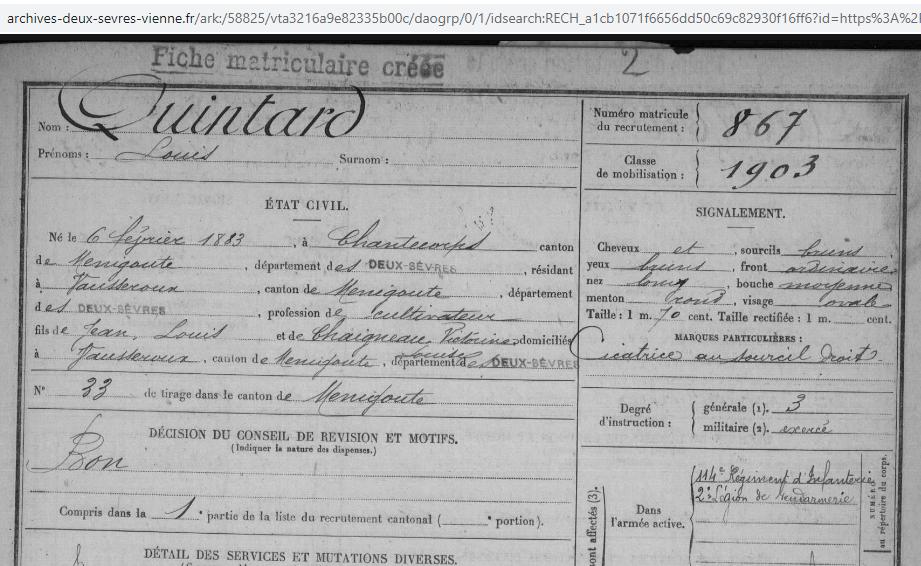 archives-deux-sevres-vienne.fr/ark:/58825/vta3216a9e82335b00c/daogrp/0/1/idsearch:RECH_a1cb1071f6656dd50c69c82930f16ff6?id=https%3A%2
Fiche matriculaire créée
2
Nom : Quintard
Prénoms : Louis Surnom :
ÉTAT CIVIL.
Né le 6 février 1883, à Chantecorps canton
de Menigoute, département des DEUX-SÈVRES, résidant
à Vausseroux, canton de Menigoute, département
des DEUX-SÈVRES, profession de cultivateur
fils de Jean, Louis et de Chaigneau, Victorine domiciliés
Louise
à Vausseroux, canton de Menigoute, département des DEUX-SÈVRES
N° 33 de tirage dans le canton de Menigoute
DÉCISION DU CONSEIL DE REVISION ET MOTIFS.
(Indiquer la nature des dispenses.)
Bon
Compris dans la 1e partie de la liste du recrutement cantonal ( e portion).
DÉTAIL DES SERVICES ET MUTATIONS DIVERSES.
Numéro matricule
du recrutement : 867
Classe
de mobilisation : 1903
SIGNALEMENT.
Cheveux et, sourcils bruns
yeux bruns, front ordinaire
nez long, bouche moyenne
menton rond, visage ovale
Taille : 1 m. 70 cent. Taille rectifiée : 1 m. cent.
MARQUES PARTICULIÈRES :
Cicatrice au sourcil droit
Degré
d'instruction :
générale (1). 3
militaire (2). exercé
Dans
l'armée active.
114e Régiment d'Infanterie
2e Légion de Gendarmerie
NUMÉRO
au répertoire du corps.
ont affectés (3).